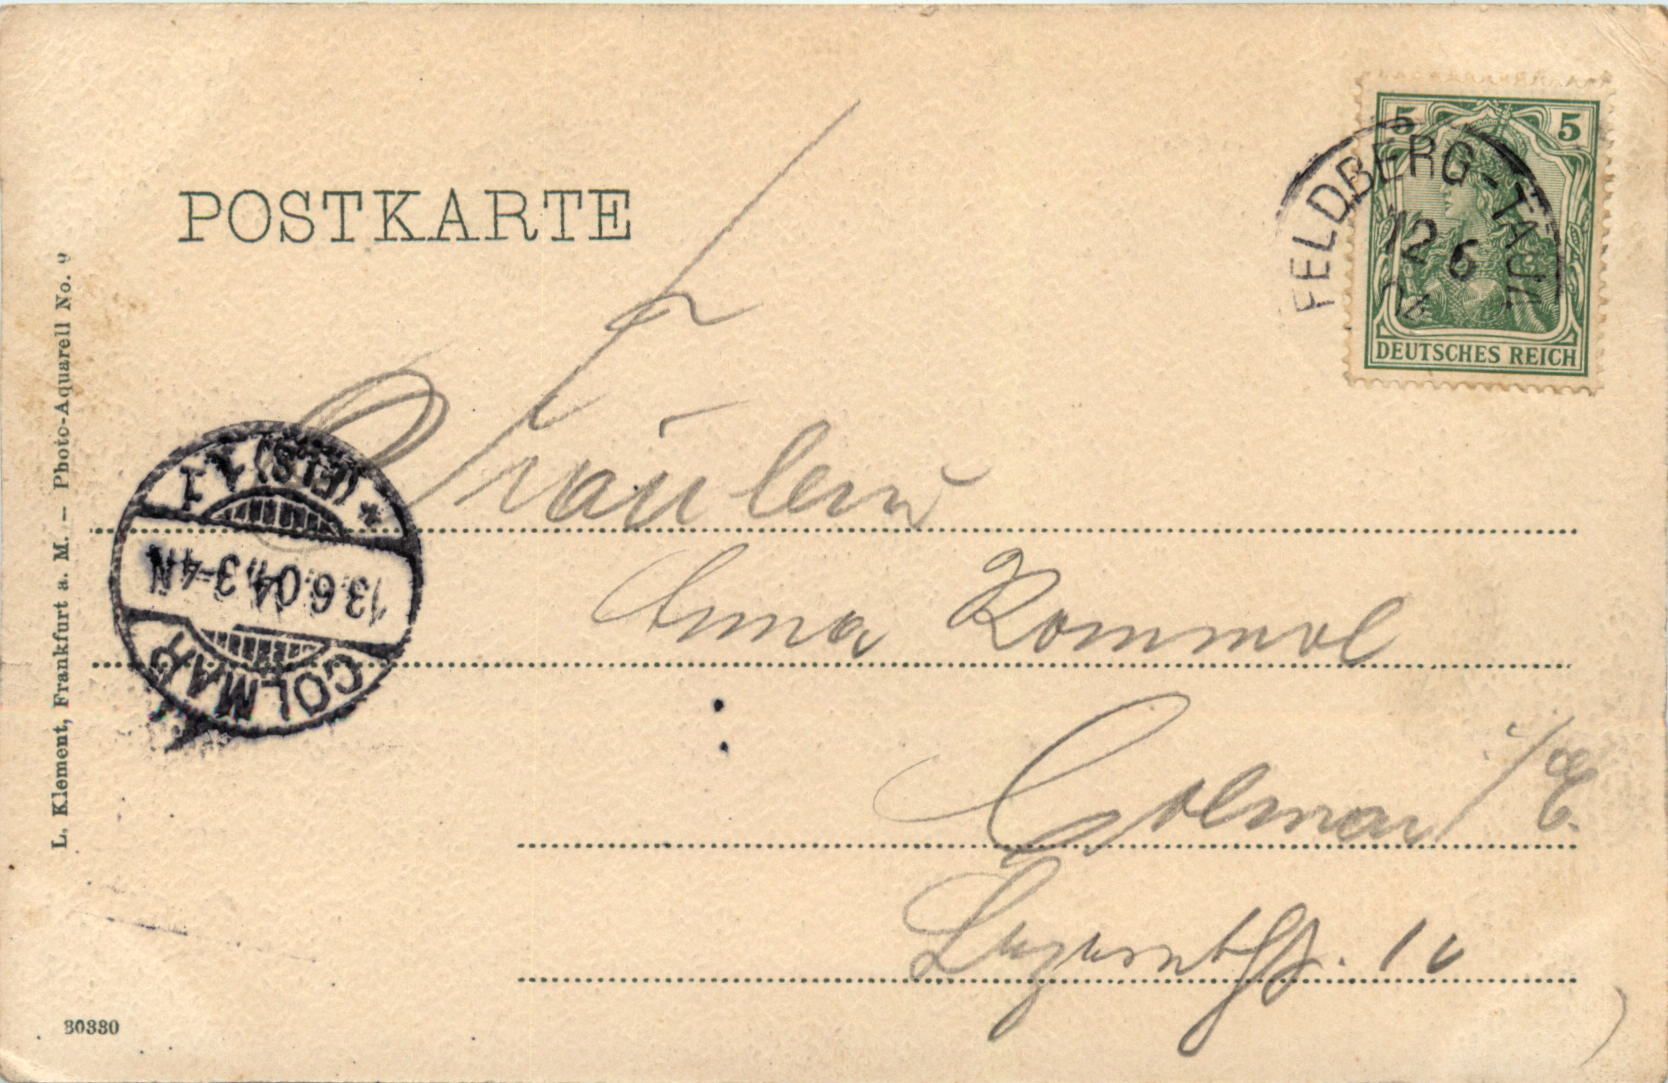 POSTKARTE
5 5
FELDBERG-TAUN
12 6
04
DEUTSCHES REICH
L. Klement, Frankfurt a. M. — Photo-Aquarell No. 9
COLMAR
13.6.04.3-4N
(ELS) 1.
Fräulein
Anna Rommel
Colmar i/E.
30330